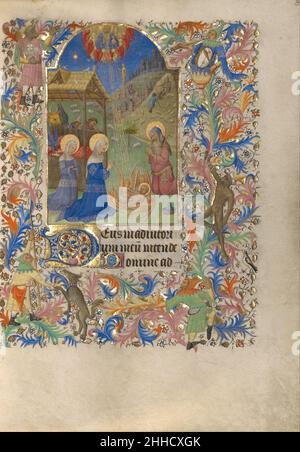 Eus in adiutori
um meum intende
Domine ad
alamy
Image ID: 2HHCXGK
www.alamy.com